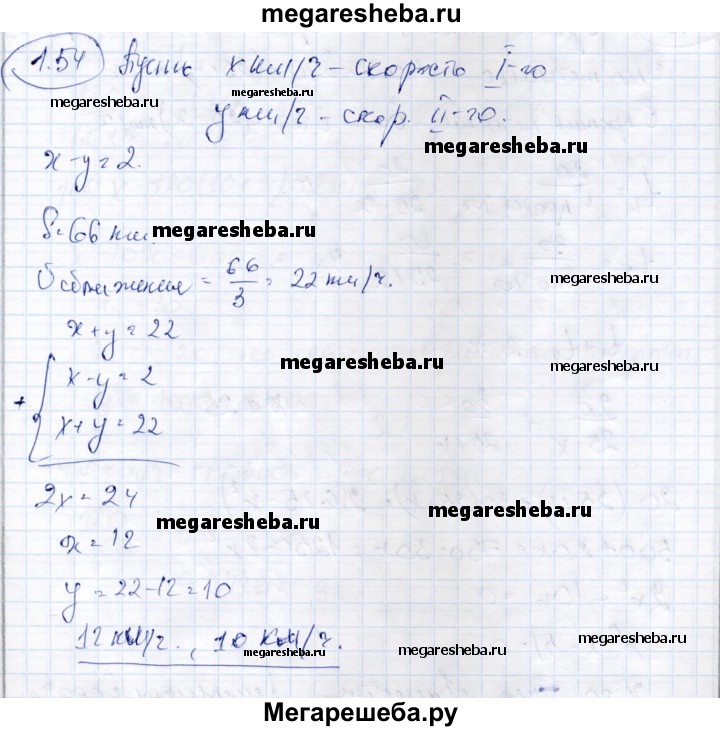 megaresheba.ru
1.54 Пусть x км/ч - скорость I-го
megaresheba.ru megaresheba.ru
y км/ч - скор. II-го.
megaresheba.ru
x - y = 2.
S = 66 км. megaresheba.ru
υ сближение = 66/3 = 22 км/ч.
x + y = 22
megaresheba.ru
x - y = 2
+
x + y = 22
2x = 24
megaresheba.ru megaresheba.ru
x = 12
y = 22 - 12 = 10
12 км/ч., 10 км/ч.
megaresheba.ru megaresheba.ru megaresheba.ru
Мегарешеба.ру